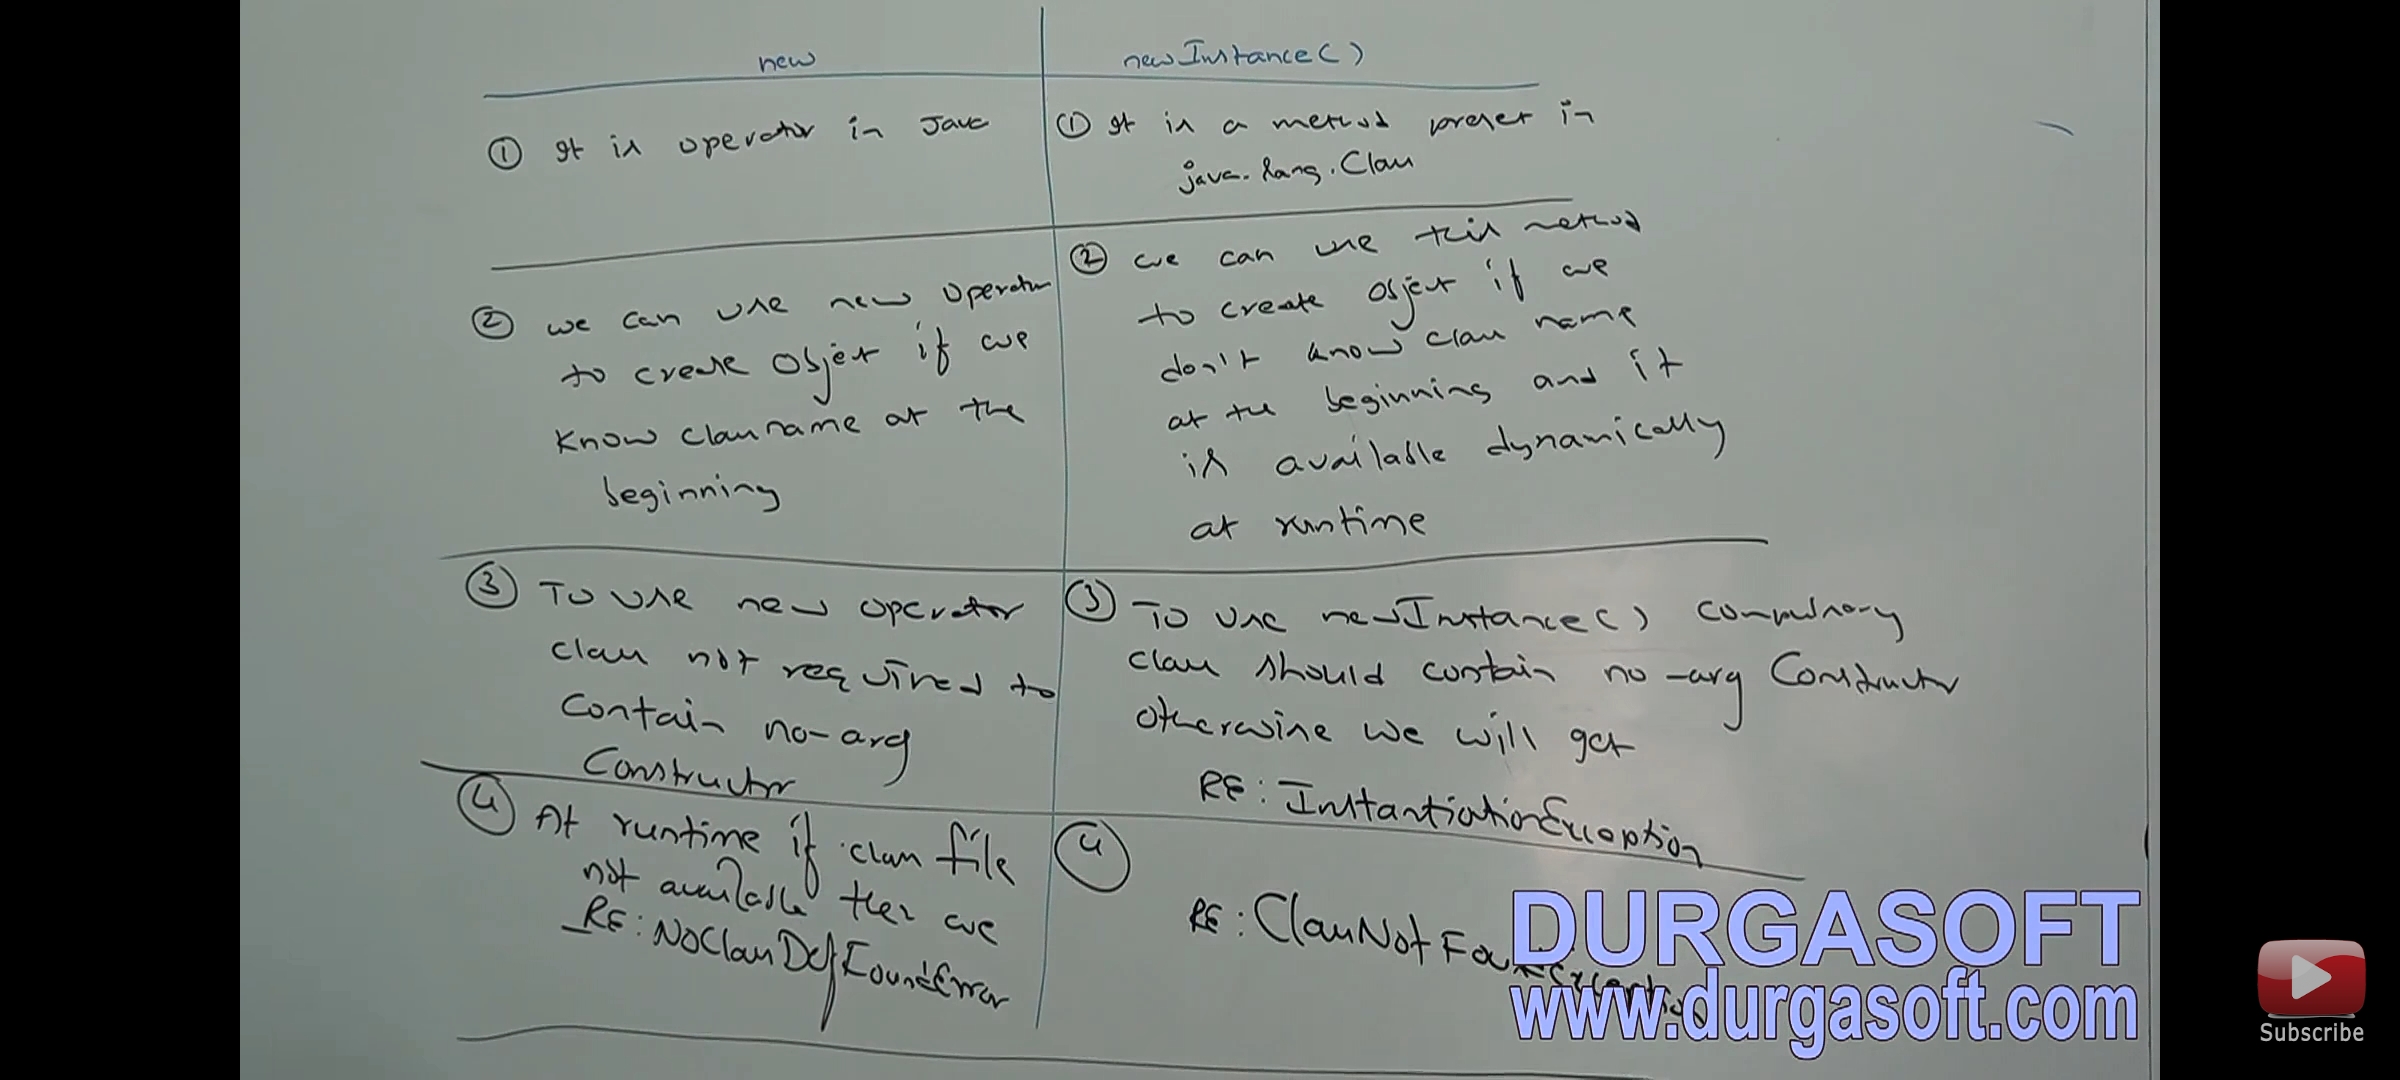 new
newInstance()
① It is operator in Java
① It is a method present in
java.lang.Class
② we can use new operator
to create Object if we
know class name at the
beginning
② we can use this method
to create object if we
don't know class name
at the beginning and it
is available dynamically
at runtime
③ To use new operator
class not required to
contain no-arg
Constructor
③ To use newInstance() compulsory
class should contain no-arg Constructor
otherwise we will get
RE: InstantiationException
④ At runtime if .class file
not available then we
RE: NoClassDefFoundError
④
RE: ClassNotFoundException
DURGASOFT
www.durgasoft.com
Subscribe